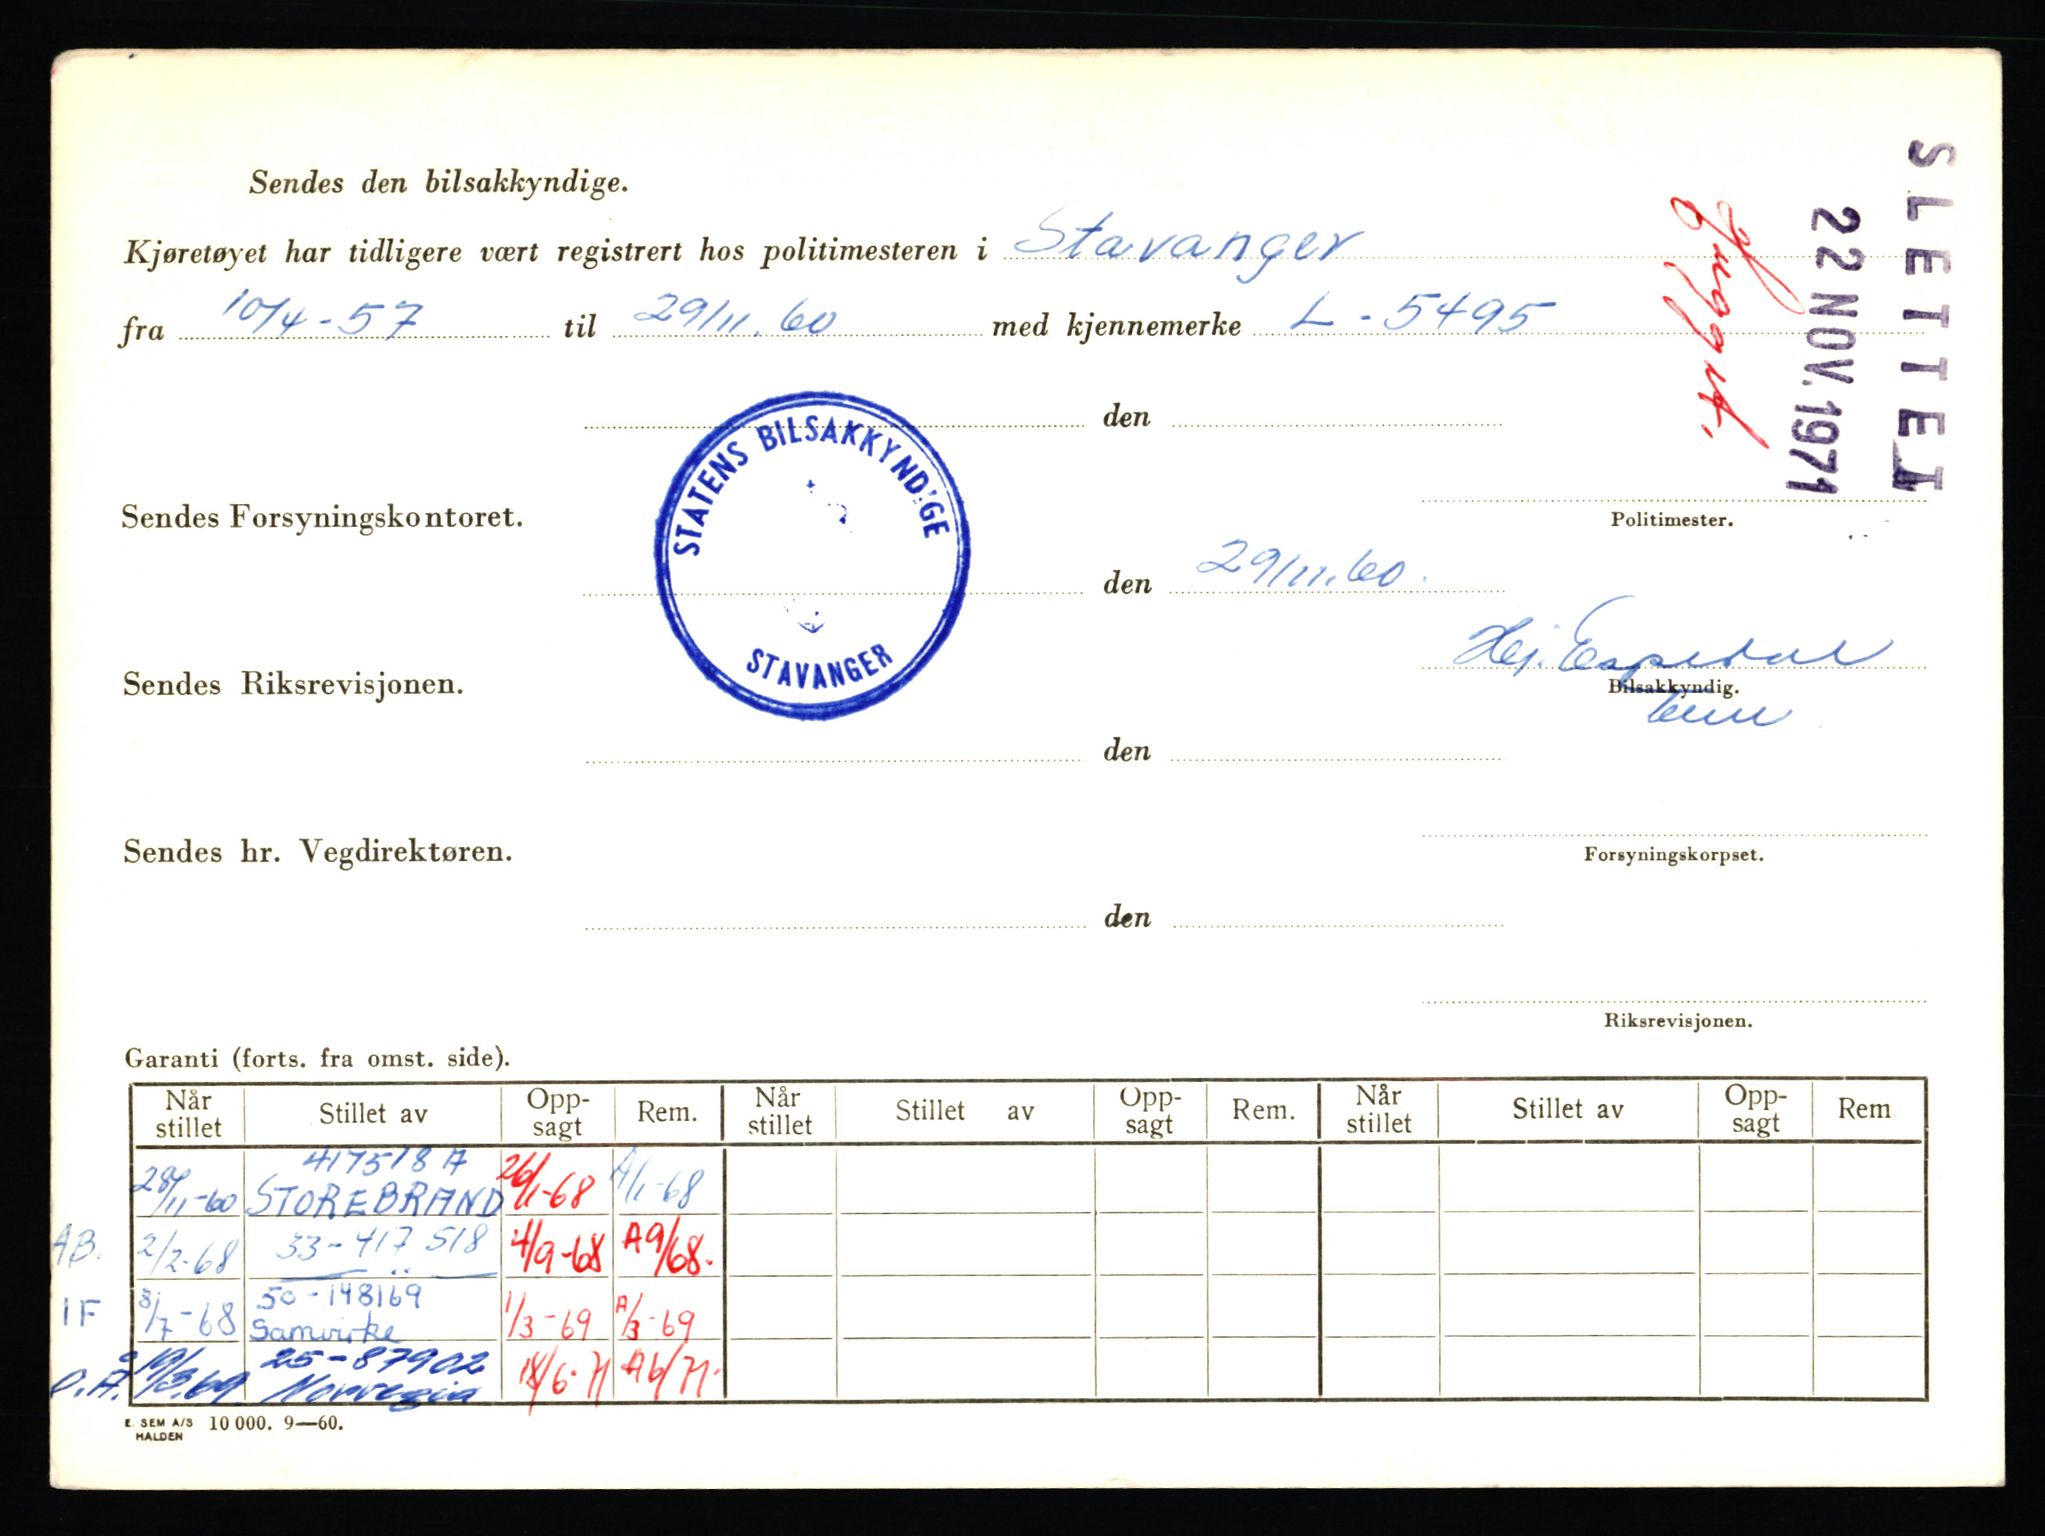 Sendes den bilsakkyndige.
Kjøretøyet har tidligere vært registrert hos politimesteren i Stavanger
fra 10/4-57 til 29/11.60 med kjennemerke L-5495
SLETTET
22 NOV. 1971
Hugget.
den
Politimester.
STATENS BILSAKKYNDIGE
STAVANGER
Sendes Forsyningskontoret.
den 29/11.60.
Espedal
Bilsakkyndig.
Sendes Riksrevisjonen.
den
Forsyningskorpset.
Sendes hr. Vegdirektøren.
den
Riksrevisjonen.
Garanti (forts. fra omst. side).
Når stillet Stillet av Opp-sagt Rem. Når stillet Stillet av Opp-sagt Rem. Når stillet Stillet av Opp-sagt Rem
417518 A
/11-60 STOREBRAND 26/1-68 A/1-68
AB. 2/2-68 33-417 518 4/9-68 A9/68.
IF 8/7-68 50-148169 1/3-69 A/3-69
Samvirke
19/3.69 25-87902 18/6.71 A6/71.
Norvegia
E. SEM A/S HALDEN 10 000. 9—60.